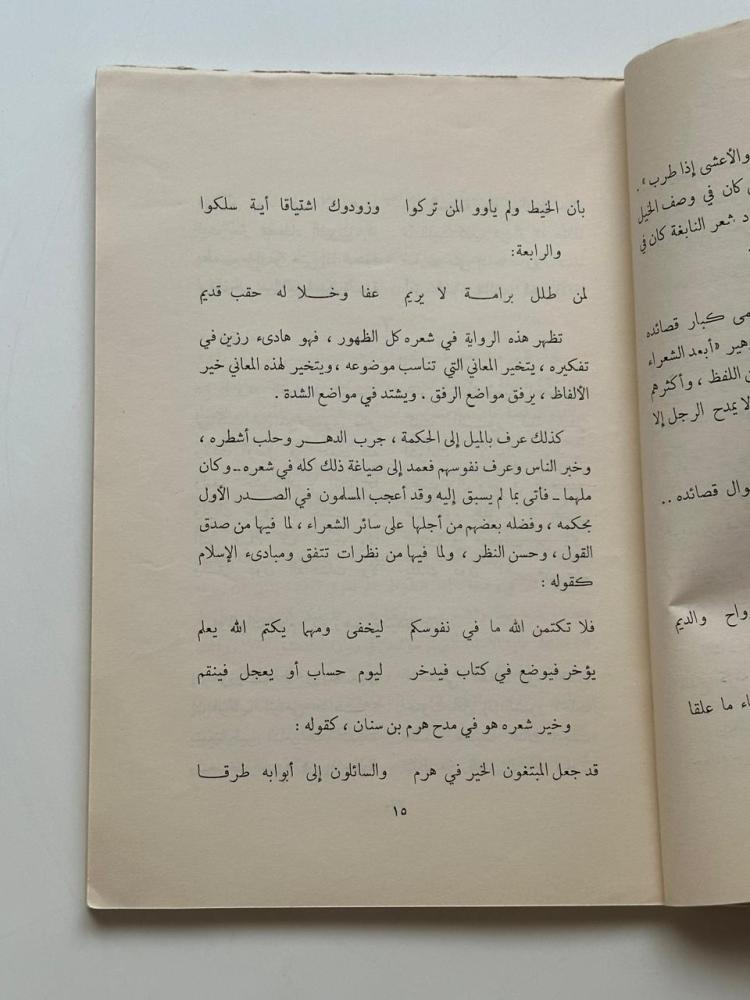 والأعشى إذا طرب،.
كان في وصف الخيل
شعر النابغة كان في
كبار قصائده
«أبعد الشعراء
اللفظ ، وأكثرهم
لا يمدح الرجل إلا
قصائده ..
والديم
ما علقا
بأن الخيط ولم يأوو المن تركوا وزودوك اشتياقا أية سلكوا
والرابعة:
لمن طلل برامة لا يريم عفا وخلا له حقب قديم
تظهر هذه الرواية في شعره كل الظهور ، فهو هادىء رزين في
تفكيره ، يتخير المعاني التي تناسب موضوعه ، ويتخير لهذه المعاني خير
الألفاظ ، يرفق مواضع الرفق . ويشتد في مواضع الشدة .
كذلك عرف بالميل إلى الحكمة ، جرب الدهر وحلب أشطره ،
وخبر الناس وعرف نفوسهم فعمد إلى صياغة ذلك كله في شعره ــ وكان
ملهما ــ فأتى بما لم يسبق إليه وقد أعجب المسلمون في الصدر الأول
بحكمه ، وفضله بعضهم من أجلها على سائر الشعراء ، لما فيها من صدق
القول ، وحسن النظر ، ولما فيها من نظرات تتفق ومبادىء الإسلام
كقوله :
فلا تكتمن الله ما في نفوسكم ليخفى ومهما يكتم الله يعلم
يؤخر فيوضع في كتاب فيدخر ليوم حساب أو يعجل فينقم
وخير شعره هو في مدح هرم بن سنان ، كقوله :
قد جعل المبتغون الخير في هرم والسائلون إلى أبوابه طرقا
١٥